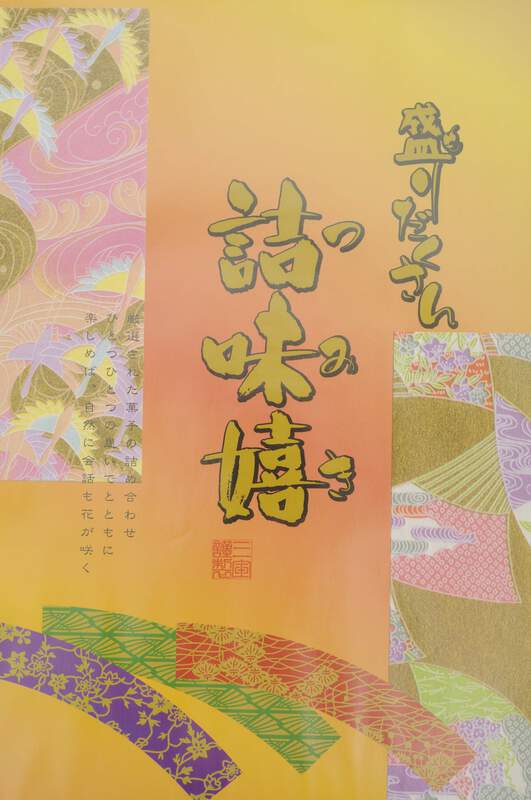 盛りだくさん
詰味嬉
つみき
謹製
厳選された菓子の詰め合わせ
ひとつひとつの思いでとともに
楽しめば、自然に会話も花が咲く